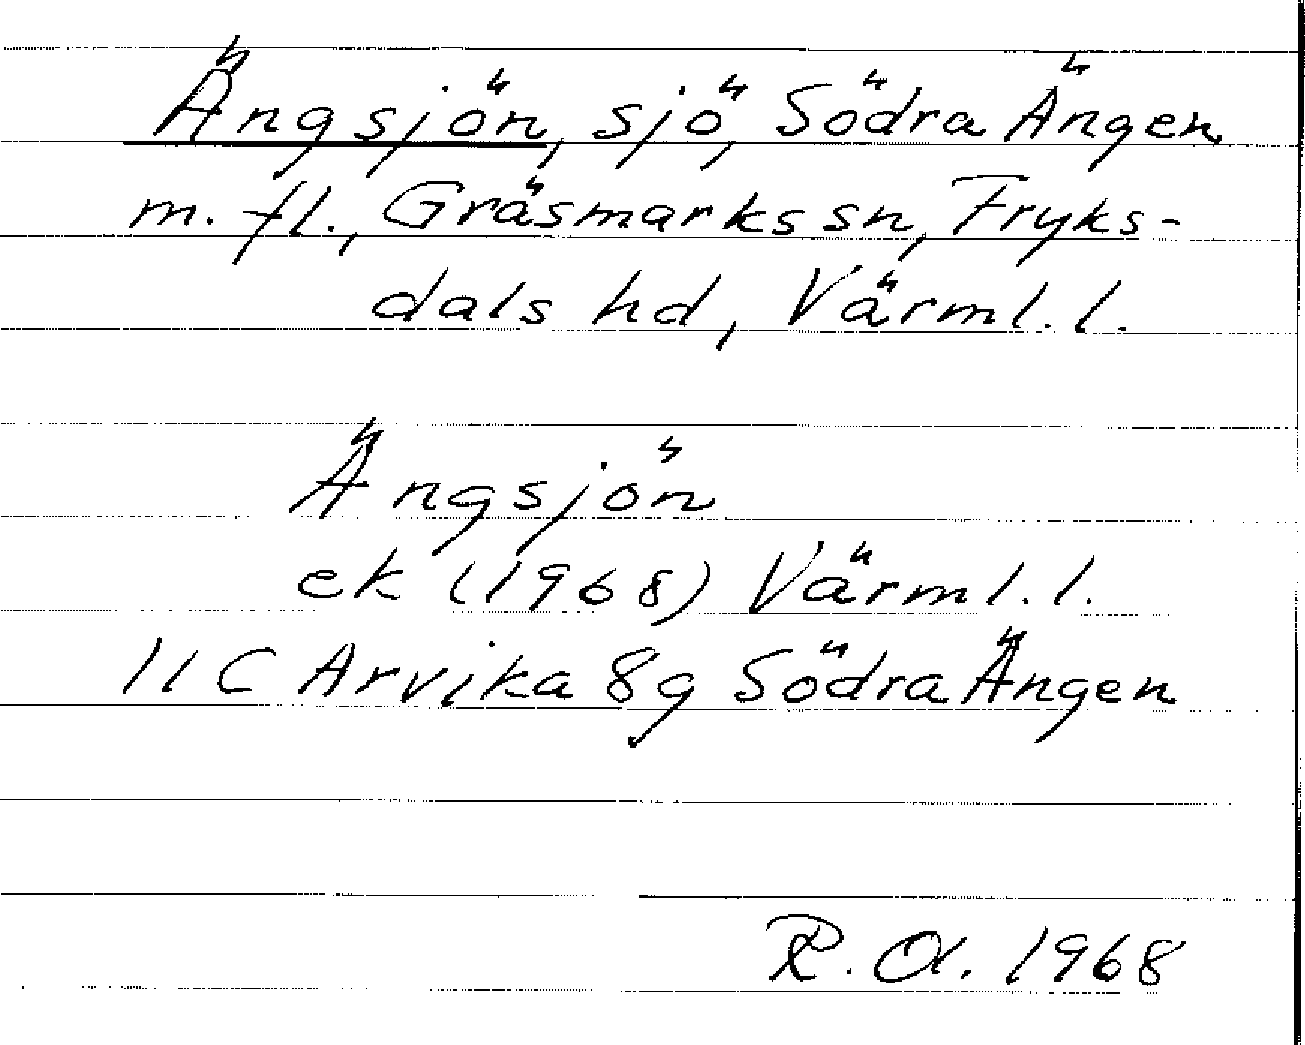 Ängsjön, sjö, Södra Ängen
m. fl., Gräsmarks sn, Fryks-
dals hd, Värml. l.
Ängsjön
ek (1968) Värml. l.
11 C Arvika 8g Södra Ängen
R. O. 1968